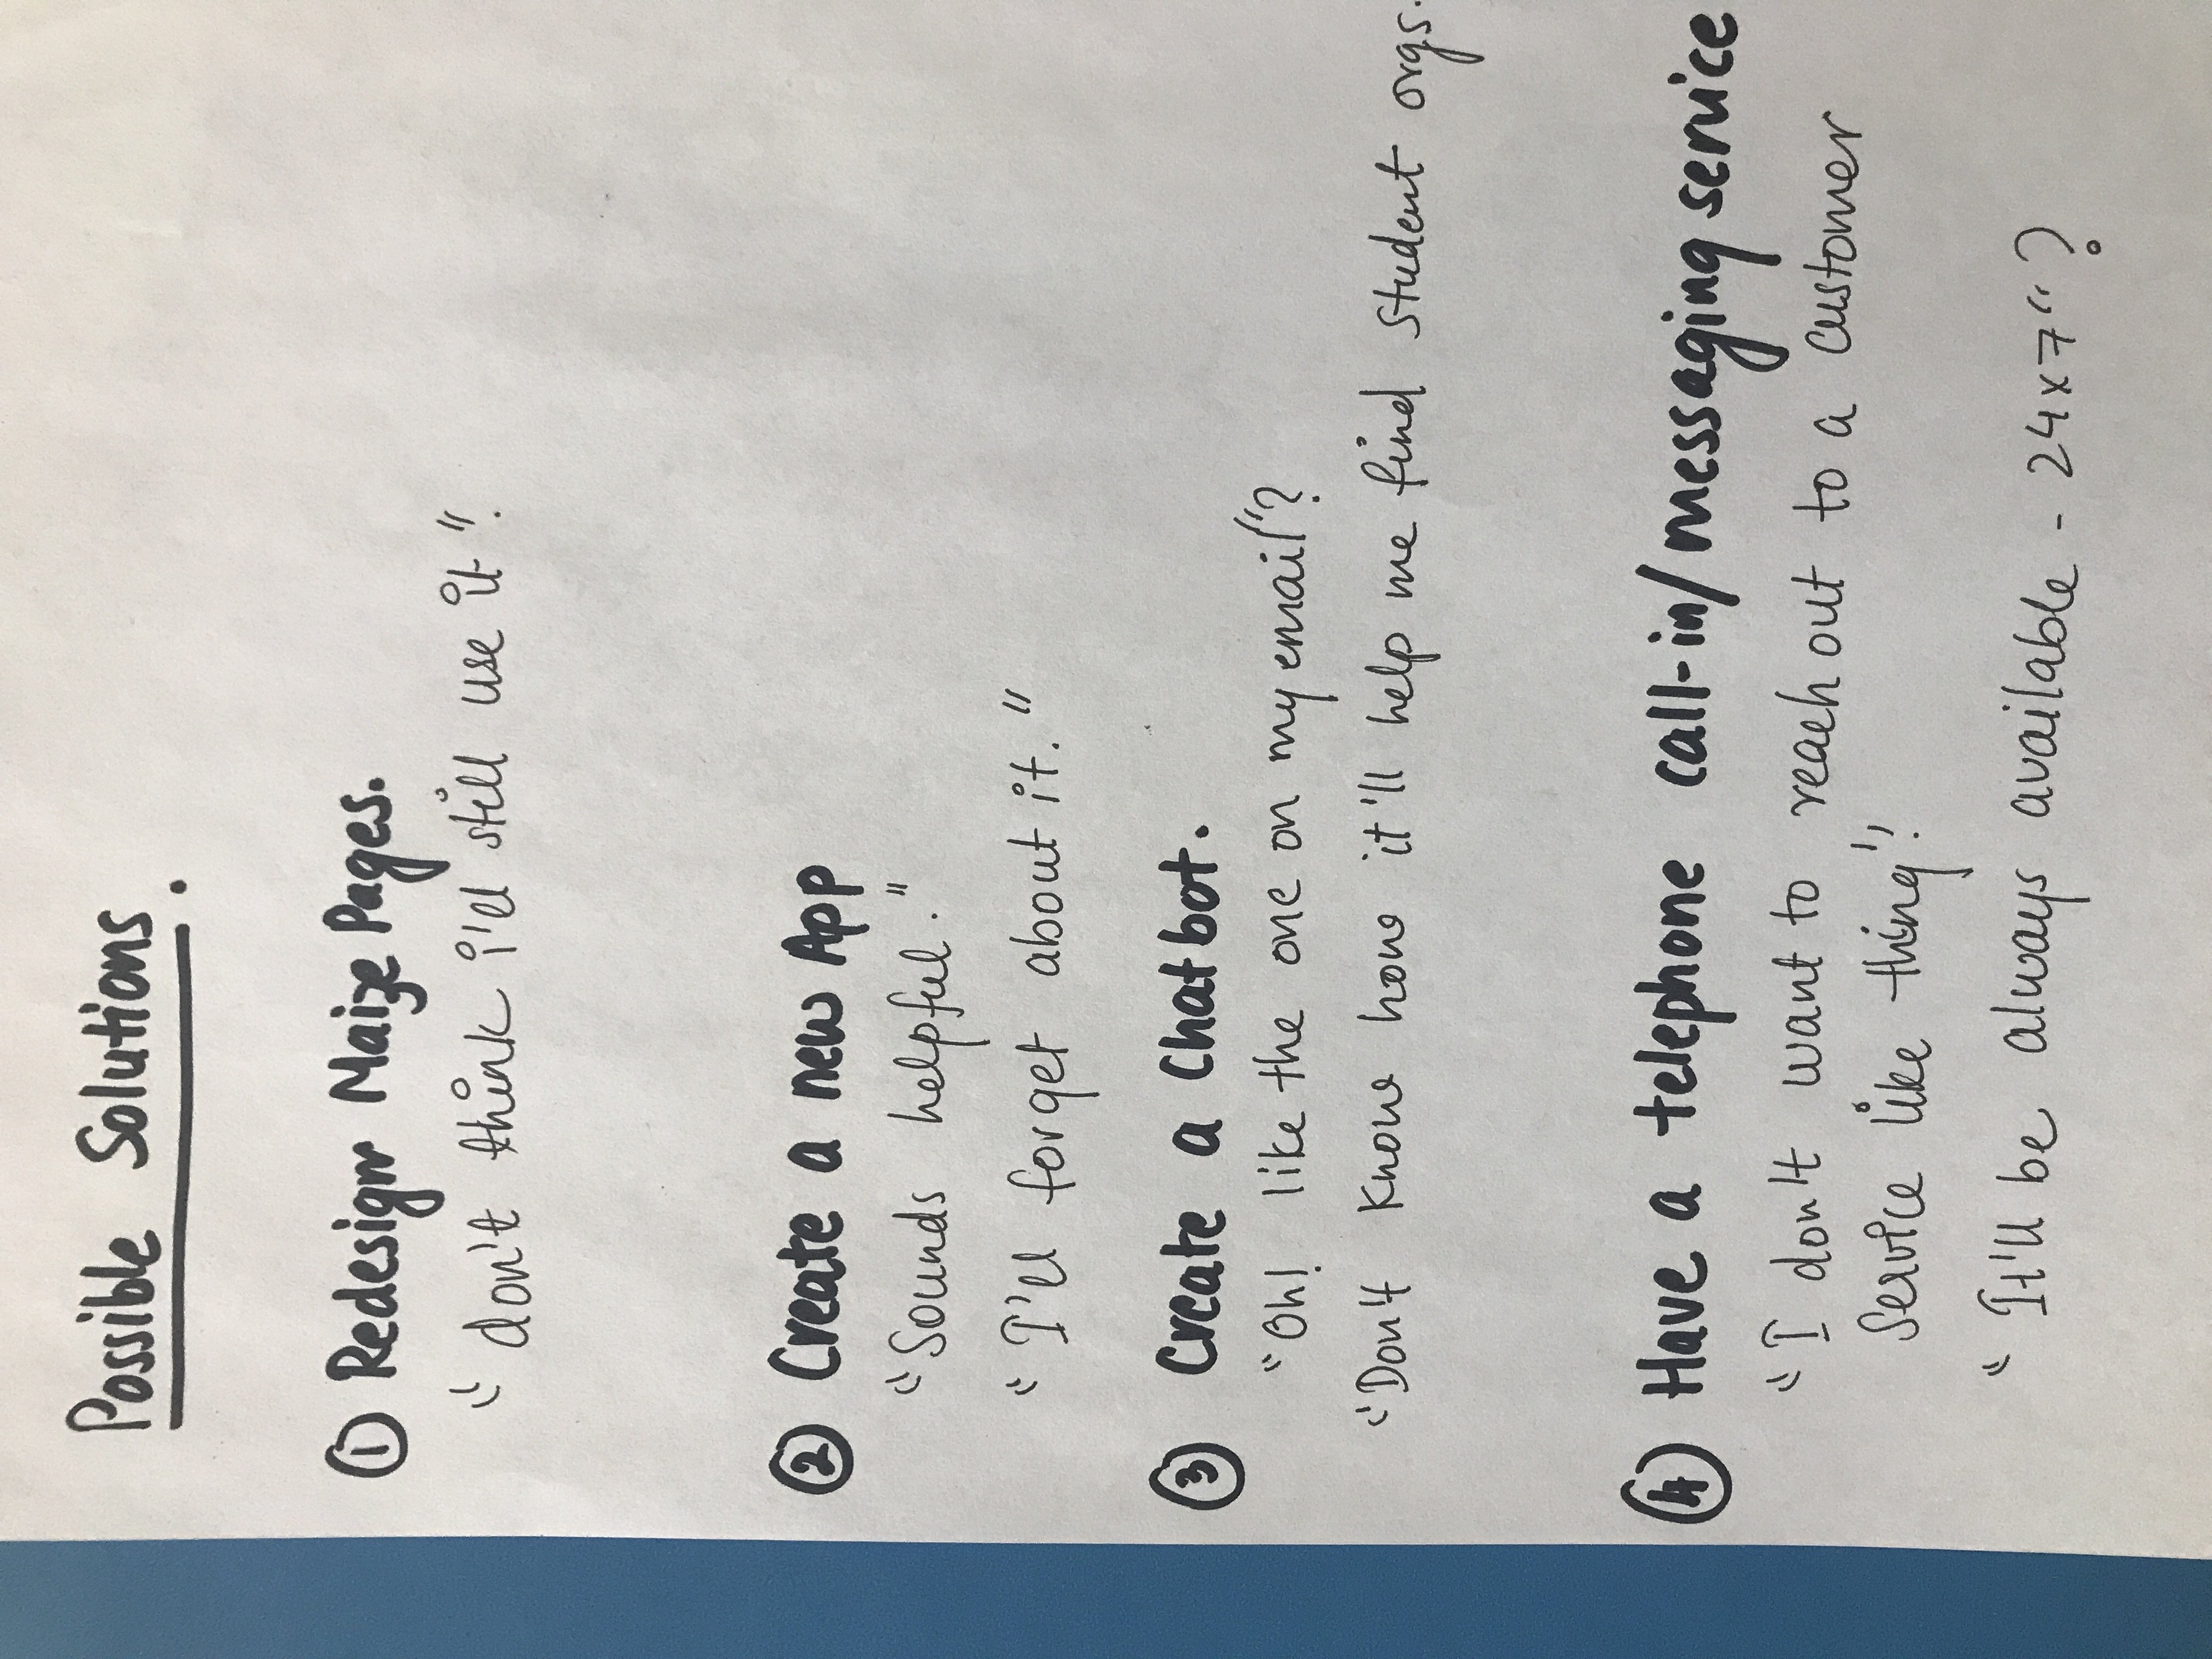 Possible Solutions.
① Redesign Maize Pages.
"don't think i'll still use it".
② Create a new App
"Sounds helpful."
"I'll forget about it."
③ Create a Chatbot.
"Oh! like the one on my email"?
"Don't know how it'll help me find student orgs.
④ Have a telephone call-in/messaging service
"I don't want to reach out to a customer
service like thing".
"It'll be always available - 24x7"?